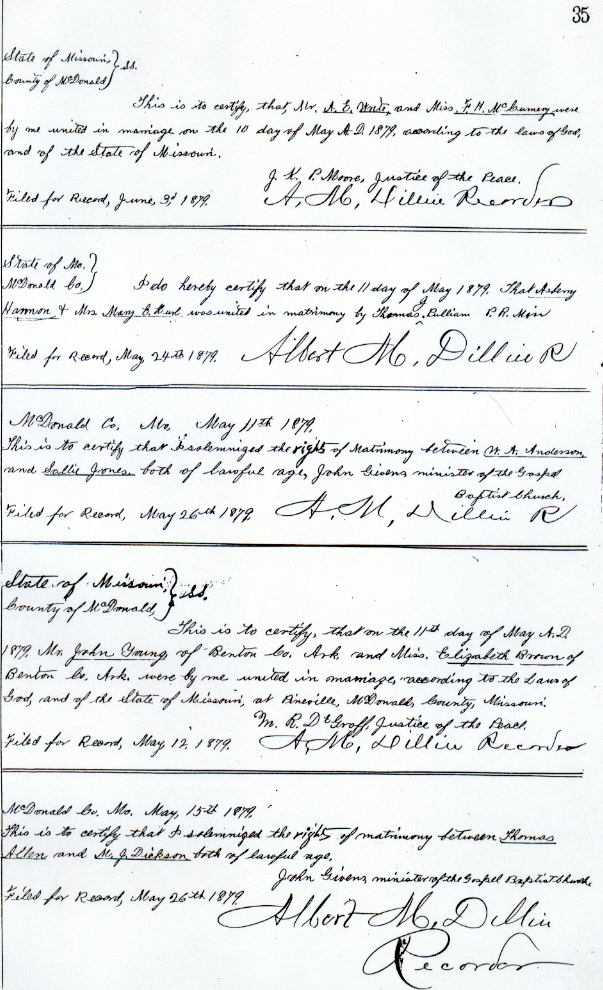 35
State of Missouri } ss.
County of McDonald }
This is to certify, that, Mr. A. E. and Miss. F. H. McCumery were
by me united in marriage on the 10 day of May A.D. 1879, according to the laws of God,
and of the State of Missouri.
J. K. P. Moore, Justice of the Peace.
Filed for Record, June, 3d 1879. A. M. Dillin Recorder
State of Mo. }
McDonald Co, } I do hereby certify that on the 11 day of May 1879. That Asberry
Harmon & Mrs Mary E. was united in matrimony by Thomas J Pulliam P. R. Min
Filed for Record, May 24th 1879. Albert M. Dillin R
McDonald Co. Mo. May 11th 1879.
This is to certify that I solemnized the rights of Matrimony between W. A. Anderson
and Sallie Jones both of lawful age, John Givens minister of the Gospel
Baptist Church.
Filed for Record, May 26th 1879 A. M. Dillin R
State of Missouri, } ss.
County of McDonald, }
This is to certify, that on the 11st day of May A.D.
1879 Mr. John Young of Benton Co. Ark. and Miss. Elizabeth Brown of
Benton Co. Ark. were by me united in marriage, according to the Laws of
God, and of the State of Missouri, at Pineville, McDonald, County, Missouri.
Wm. R. DeGroff, Justice of the Peace.
Filed for Record, May, 12, 1879. A. M. Dillin Recorder
McDonald Co. Mo. May, 15th 1879.
This is to certify that I solemnized the rights of matrimony between Thomas
Allen and M. J. Dickson both of lawful age.
John Givens minister of the Gospell Baptist Church.
Filed for Record, May 26th 1879
Albert M. Dillin
Recorder